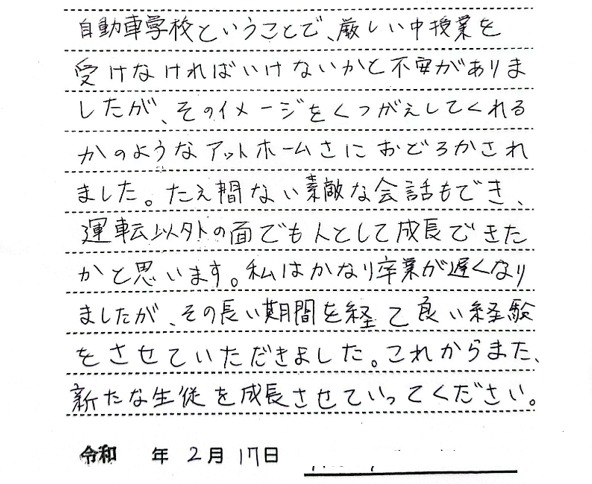 自動車学校ということで、厳しい中授業を
受けなければいけないかと不安がありま
したが、そのイメージをくつがえしてくれる
かのようなアットホームさにおどろかされ
ました。たえ間ない素敵な会話もでき、
運転以外の面でも人として成長できた
かと思います。私はかなり卒業が遅くなり
ましたが、その長い期間を経て良い経験
をさせていただきました。これからまた、
新たな生徒を成長させていってください。
令和 年 2月 17日